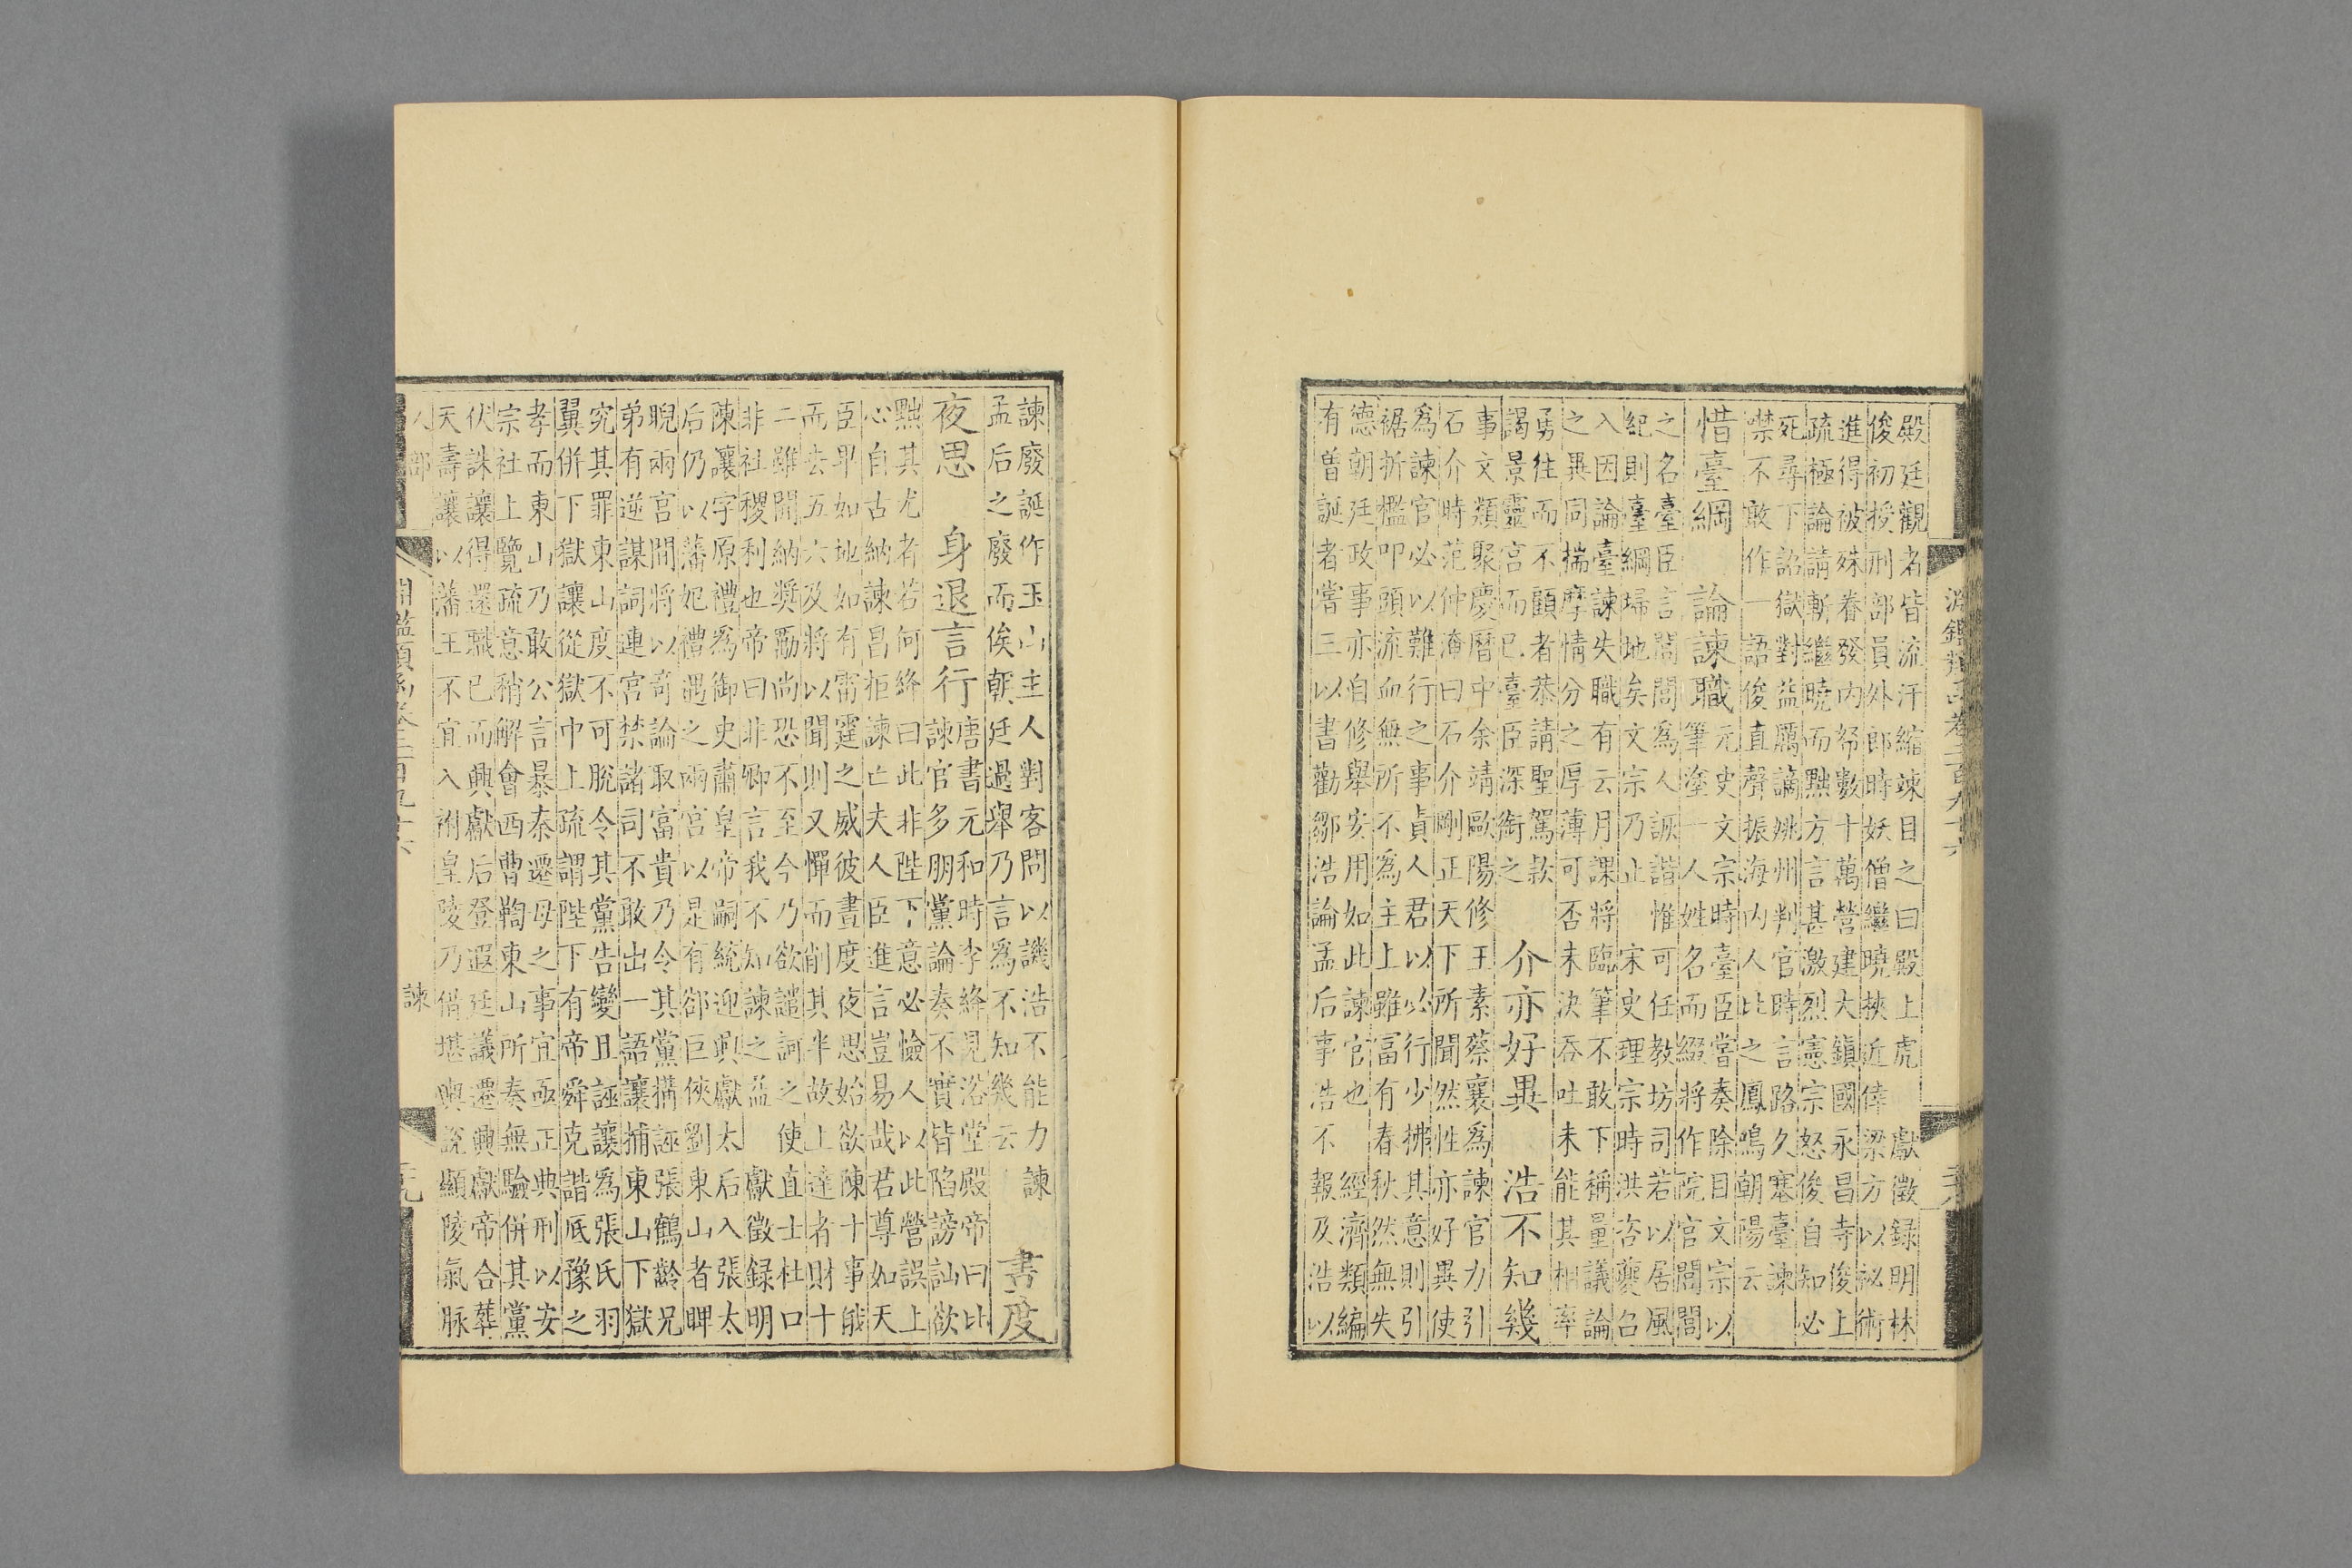 殿廷觀者皆流汗縮竦目之曰殿上虎　獻徵錄明林
俊初授刑部員外郎時妖僧繼曉挾近倖梁方以祕術
進得被殊眷發內帑數十萬營建大鎮國永昌寺俊上
疏極論請斬繼曉而黜方言甚激烈憲宗怒俊自知必
死尋下詔獄對益厲謫姚州判官時言路久塞臺諫
噤不敢作一語俊直聲振海內人比之鳳鳴朝陽云
惜臺綱　論諫職
元史文宗時臺臣嘗奏除目文宗以
筆塗一人姓名而綴將作院官閭閭
之名臺臣言閭閭為人詼諧惟可任教坊司若以居風
紀則臺綱埽地矣文宗乃止　宋史理宗時洪咨夔召
入因論臺諫失職有云月課將臨筆不敢下稱量議論
之異同揣摩情分之厚薄可否未決吞吐未能其相率
勇往而不顧者恭請聖駕款
謁景靈宮而已臺臣深銜之
介亦好異　浩不知幾
事文類聚慶曆中余靖歐陽修王素蔡襄為諫官力引
石介時范仲淹曰石介剛正天下所聞然性亦好異使
為諫官必以難行之事責人君以必行少拂其意則引
裾折檻叩頭流血無所不為主上雖富有春秋然無失
德朝廷政事亦自修舉安用如此諫官也　經濟類編
有曾誕者嘗三以書勸鄒浩論孟后事浩不報及浩以
淵鑑類函卷二百九十六
諫廢誕作玉山主人對客問以譏浩不能力諫
孟后之廢而俟朝廷過舉乃言為不知幾云
書度
夜思　身退言行
唐書元和時李絳見浴堂殿帝曰比
諫官多朋黨論奏不實皆陷謗訕欲
黜其尤者若何絳曰此非陛下意必憸人以此營誤上
心自古納諫昌拒諫亡夫人臣進言豈易哉君尊如天
臣卑如地如有雷霆之威彼晝度夜思始欲陳十事俄
而去五六及將以聞則又憚而削其半故上達者財十
二雖開納獎勵尚恐不至今乃欲譴訶之使直士杜口
非社稷利也帝曰非卿言我不知諫之益　獻徵錄明
陳讓字原禮為御史肅皇帝嗣統迎興獻太后入張太
后仍以藩妃禮遇之兩宮以是有郤巨俠劉東山者睥
睨兩宮間將以奇論取富貴乃令其黨搆誣張鶴齡兄
弟有逆謀詞連宮禁諸司不敢出一語讓捕東山下獄
究其罪東山度不可脫令其黨告變且誣讓為張氏羽
翼併下獄讓從獄中上疏謂陛下有帝舜克諧厎豫之
孝而東山乃敢公言暴秦遷母之事宜亟正典刑以安
宗社上覽疏意稍解會西曹鞫東山所奏無驗併其黨
伏誅讓得還職已而興獻后登遐廷議遷興獻帝合葬
天壽讓以藩王不宜入祔皇陵乃借堪輿說顯陵氣脈
人部
諫